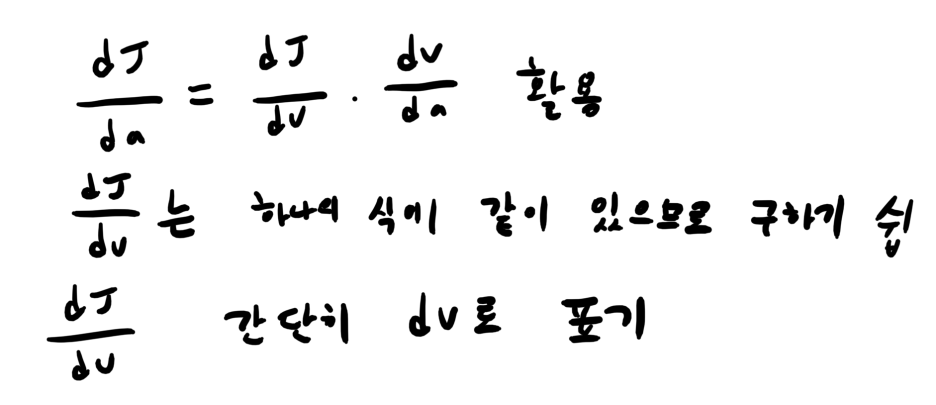 dJ/da = dJ/dv · dv/da 활용
dJ/dv 는 하나의 식에 같이 있으므로 구하기 쉽
dJ/dv 간단히 dv로 표기